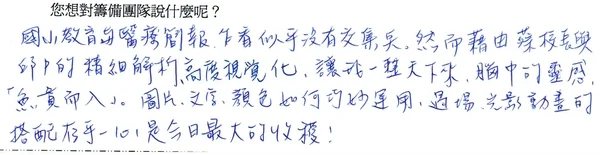 您想對籌備團隊說什麼呢？
國小教育與醫療簡報，乍看似乎沒有交集點，然而藉由蔡校長與
邱P的精細解析，高度視覺化，讓我一整天下來，腦中的靈感，
「魚貫而入」。圖片、文字、顏色如何巧妙運用，過場、光影動畫的
搭配存乎一心，是今日最大的收穫！